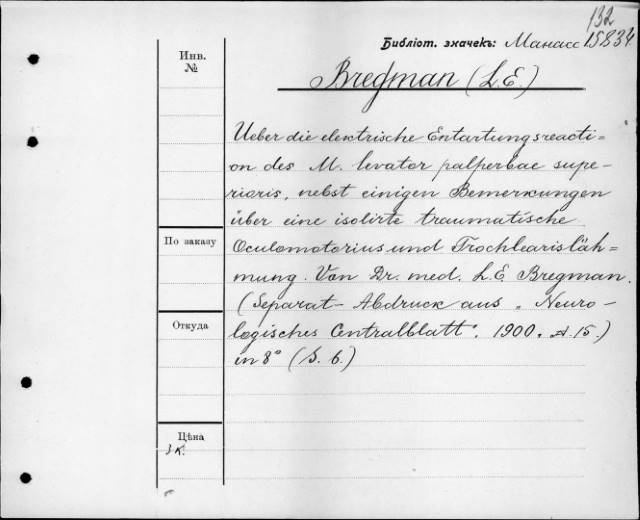 132
Библіот. значекъ: Манасс 15834
Инв.
№
Bregman (L.E.)
Ueber die elektrische Entartungsreacti=
on des M. levator palperbae supe=
rioris, nebst einigen Bemerkungen
über eine isolirte traumatische
По заказу
Oculomotorius und Trochlearisläh=
mung. Von Dr. med. L.E. Bregman.
(Separat-Abdruck aus „Neuro-
Откуда
logisches Centralblatt". 1900. №15.)
in 8° (S. 6.)
Цѣна
3 к.